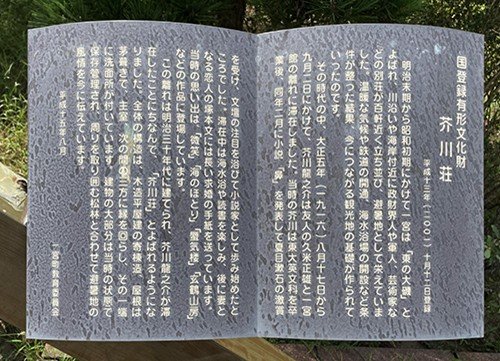 国登録有形文化財
芥川荘
平成十三年(二〇〇一)十月十二日登録
明治末期から昭和初期にかけて一宮は、「東の大磯」と
よばれ、川沿いや海岸付近に政財界人や軍人、芸術家な
どの別荘が百軒近く立ち並び、避暑地として栄えていま
した。温暖な気候や鉄道の開通、海水浴場の開設など条
件が整った結果、今につながる観光地の基礎が作られて
いったのです。
その時代の中、大正五年(一九一六)八月十七日から
九月二日にかけて、芥川龍之介は友人の久米正雄と一宮
館の離れに滞在しました。当時の芥川は東大英文科を卒
業後、同年二月に小説「鼻」を発表して夏目漱石の激賞
を受け、文壇の注目を浴びて小説家として歩み始めたと
ころでした。滞在中は海水浴や読書を楽しみ、後に妻と
なる恋人の塚本文には長い求婚の手紙を送っています。
当時の思い出は「微笑」「海のほとり」「蜃気楼」「玄鶴山房」
などの作品に登場しています。
この離れは明治三十年代に建てられ、芥川龍之介が滞
在したことにちなんで、「芥川荘」とよばれるようにな
りました。全体の構造は、木造平屋建の寄棟造、屋根は
茅葺きで、主室、次の間の三方に縁を回らし、その一端
に洗面所が付いています。建物の大部分は当時の状態で
保存管理され、周りを取り囲む松林と合わせて避暑地の
風情を今に伝えています。
平成十五年八月
一宮町教育委員会